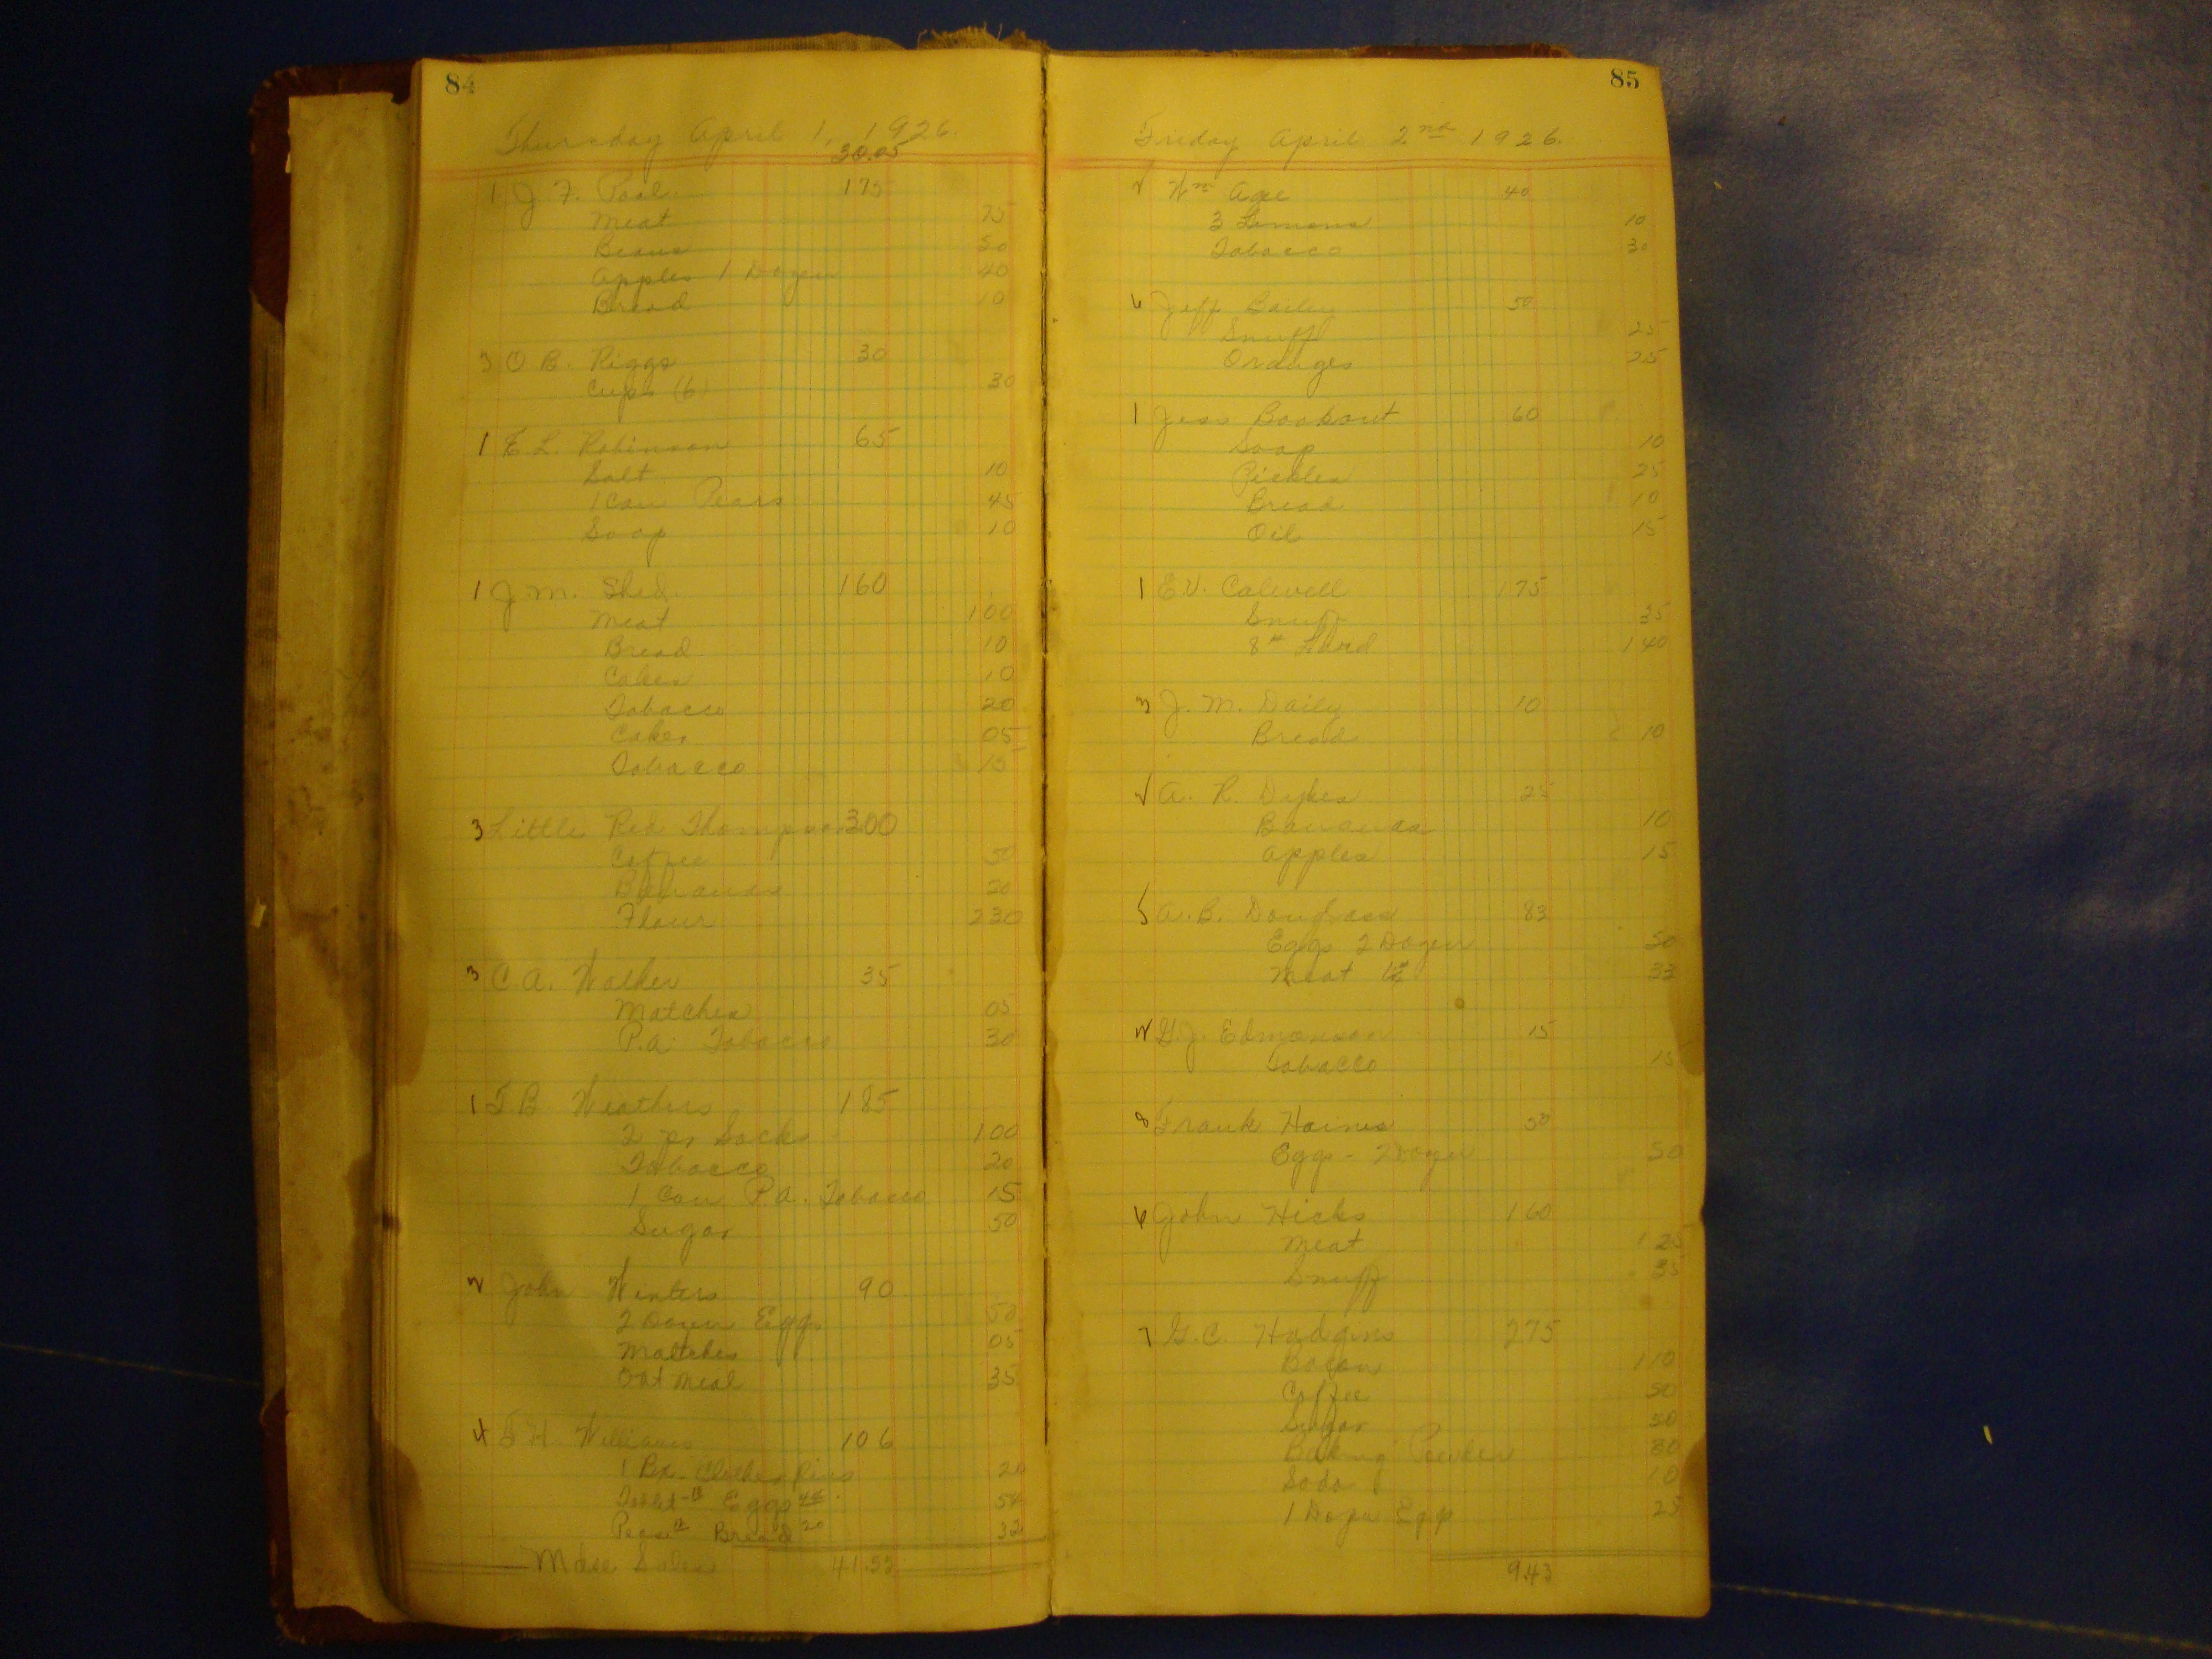 84
Thursday April 1, 1926.
30.05
1 J. F. Pool 175
Meat 75
Beans 50
Apples 1 Dozen 40
Bread 10
3 O B. Riggs 30
Cups (6) 30
1 E. L. Robinson 65
Salt 10
1 Can Pears 45
Soap 10
1 J. M. Shed. 160
Meat 100
Bread 10
Cakes 10
Tobacco 20
Cakes 05
Tobacco 15
3 Little Red Thompson 300
Coffee 50
Bananas 20
Flour 230
3 C. A. Walker 35
Matches 05
P.A. Tobacco 30
1 T B Weathers 185
2 pr Socks 1.00
Tobacco 20
1 Can P.A. Tobacco 15
Sugar 50
2 John Winters 90
2 Dozen Eggs 50
Matches 05
Oat Meal 35
4 T H. Williams 106
1 Bx. Clothes Pins 20
Eggs 44 54
Peas 12 Bread 20 32
Mdse Sales 41.53
85
Friday April 2nd 1926.
Wm Agee 40
3 Lemons 10
Tobacco 30
6 Jeff Bailey 50
Snuff 25
Oranges 25
1 Jess Bookout 60
Soap 10
Pickles 25
Bread 10
Oil 15
1 E.V. Calwell 175
Snuff 35
8# Lard 140
3 J. M. Daily 10
Bread 10
A. R. Dykes 25
Bananas 10
Apples 15
5 A. B. Douglass 83
Eggs 2 Dozen 50
Meat 33
2 G. J. Edmonson 15
Tobacco 15
8 Frank Haines 50
Eggs - 2 Dozen 50
6 John Hicks 160
Meat 125
Snuff 35
7 G. C. Hodgins 275
Bacon 110
Coffee 50
Sugar 50
Baking Powder 30
Soda 10
1 Dozen Eggs 25
9.43